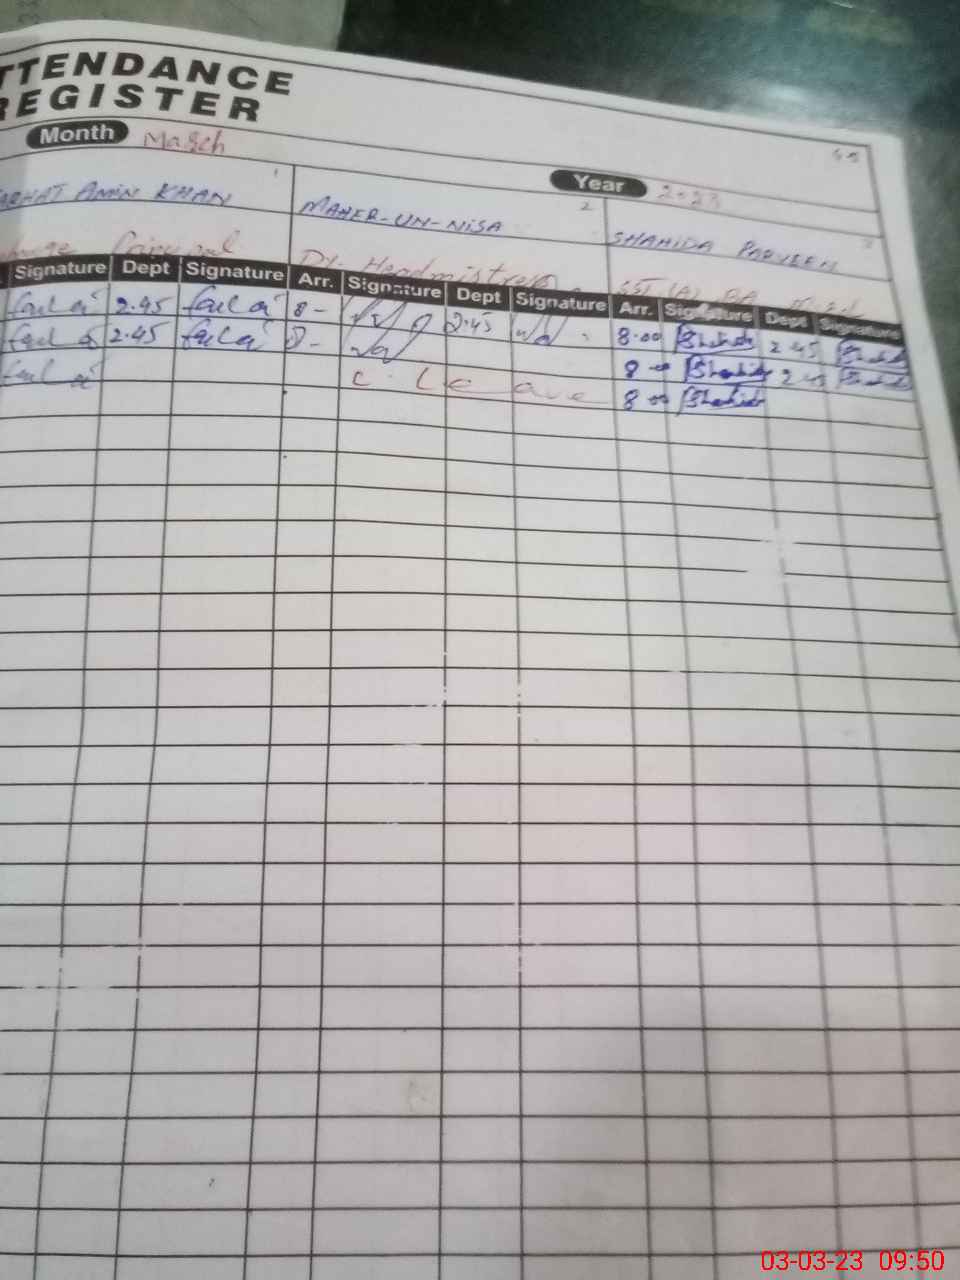 TTENDANCE
REGISTER
Month March
Year 2023
ARHAT AMIN KHAN 1 MAHER-UN-NISA 2 SHAHIDA PARVEEN 3
Dy. Headmistress SST (A) BA
Signature Dept Signature Arr. Signature Dept Signature Arr. Signature Dept Signature
2.45 8- 2.45 8.00 Shahida 2.45 Shahida
2.45 8- 8.00 Shahida 2.45 Shahida
C. Leave 8.00 Shahida
03-03-23 09:50